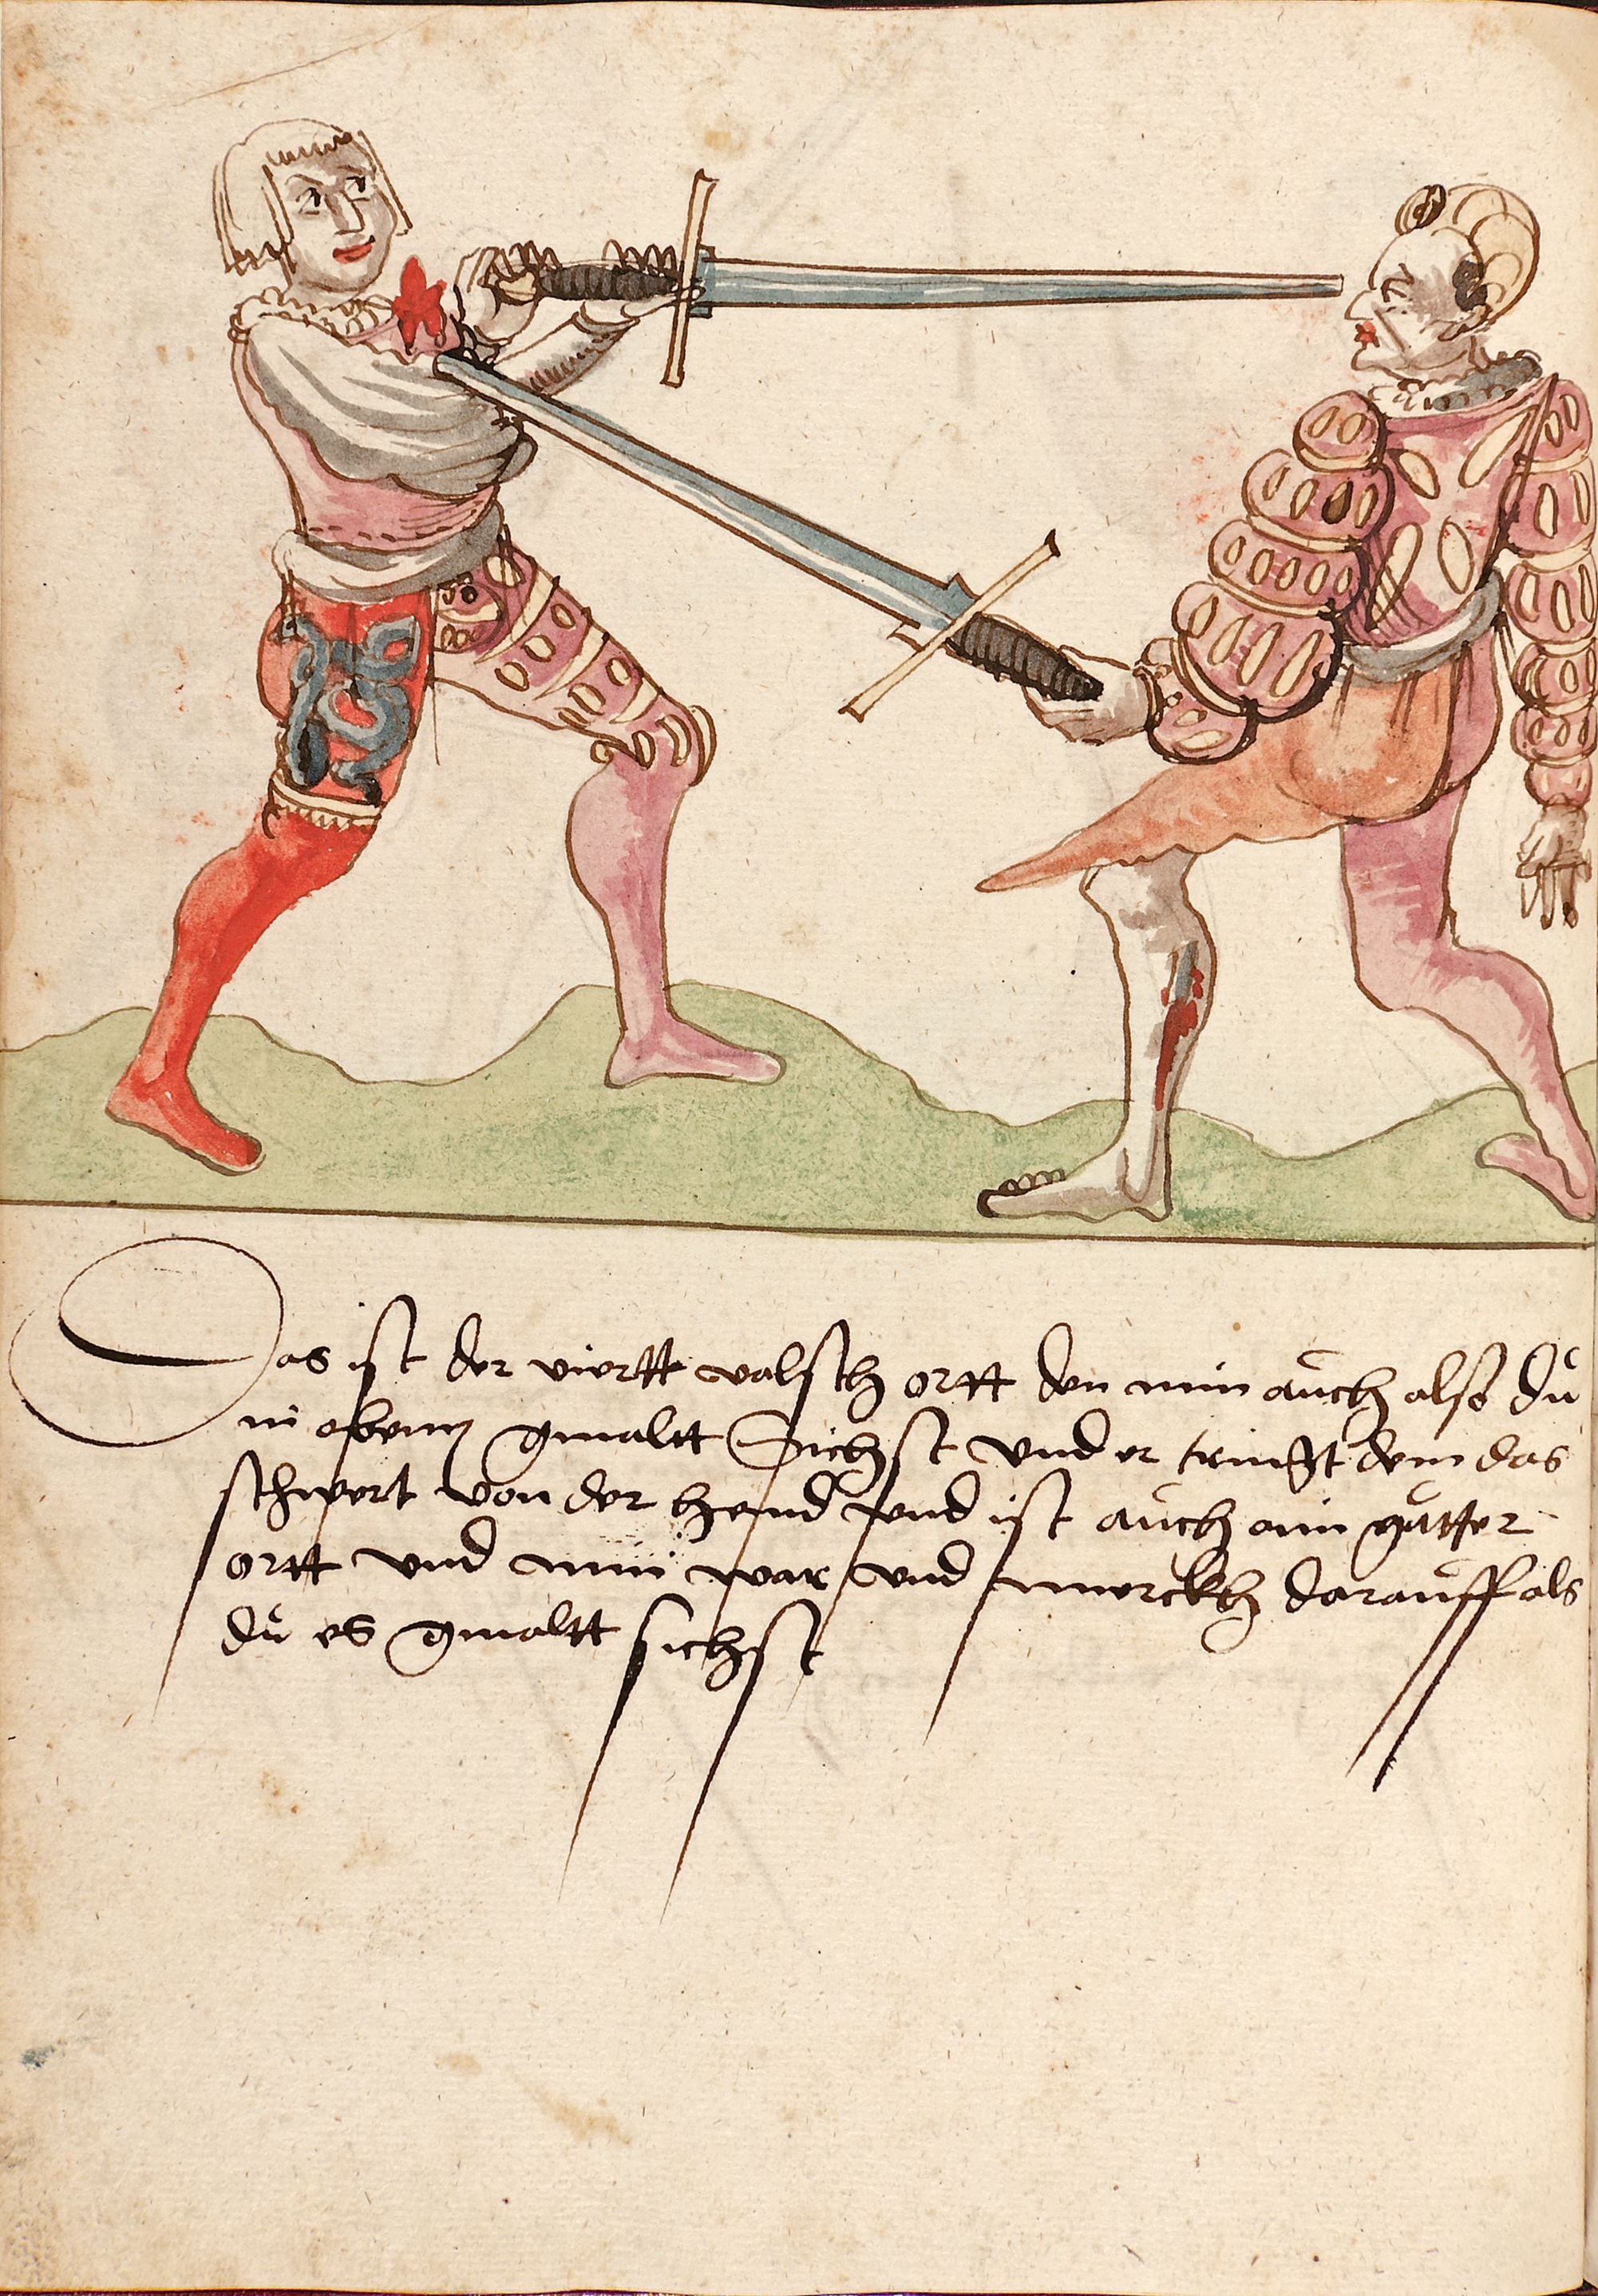 Das ist der viertt valsch ortt den nim auch also du
in oben gmaltt Sichst vnd er tringt dem das
schwert von der hend vnd ist auch ain gutter
ortt vnd nim war vnd merckh darauff als
du es gmaltt sichst